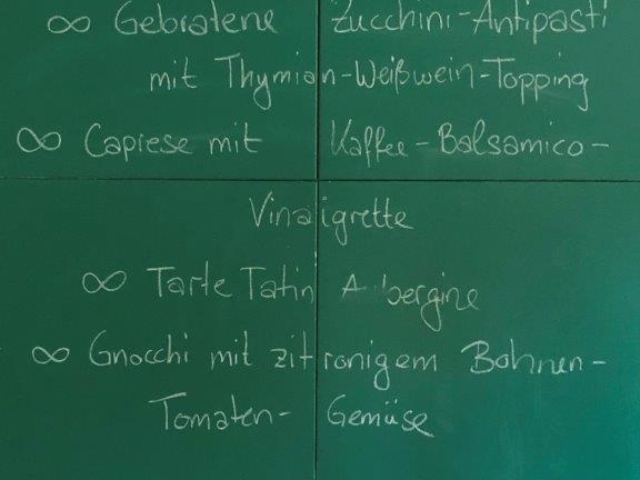 ∞ Gebratene Zucchini-Antipasti
mit Thymian-Weißwein-Topping
∞ Caprese mit Kaffee-Balsamico-
Vinaigrette
∞ Tarte Tatin Aubergine
∞ Gnocchi mit zitronigem Bohnen-
Tomaten-Gemüse